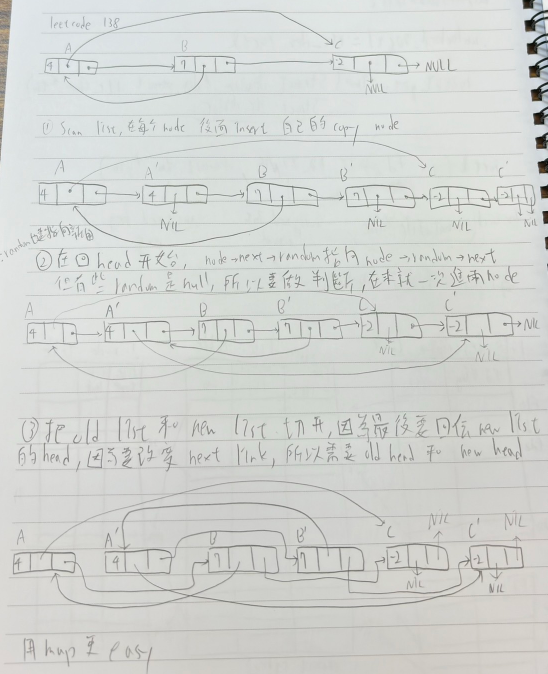 leetcode 138
A B C
4 7 -2 → NULL
NIL
① Scan list, 在每个node 後面 insert 自己的 copy node
A A' B B' C C'
4 4 7 7 -2 -2
NIL NIL NIL NIL
② 在回head 開始, node→next→random 指向 node→random→next
但有些 random 是 null, 所以要做判斷, 在來就一次進兩node
A A' B B' C C'
4 4 7 7 -2 -2 → NIL
NIL NIL
③ 把 old list 和 new list 切开, 因為最後要回傳 new list
的head, 因為要改变 next link, 所以需要 old head 和 new head
NIL NIL
A A' B B' C C'
4 4 7 7 -2 -2
NIL NIL
用 map 更 easy